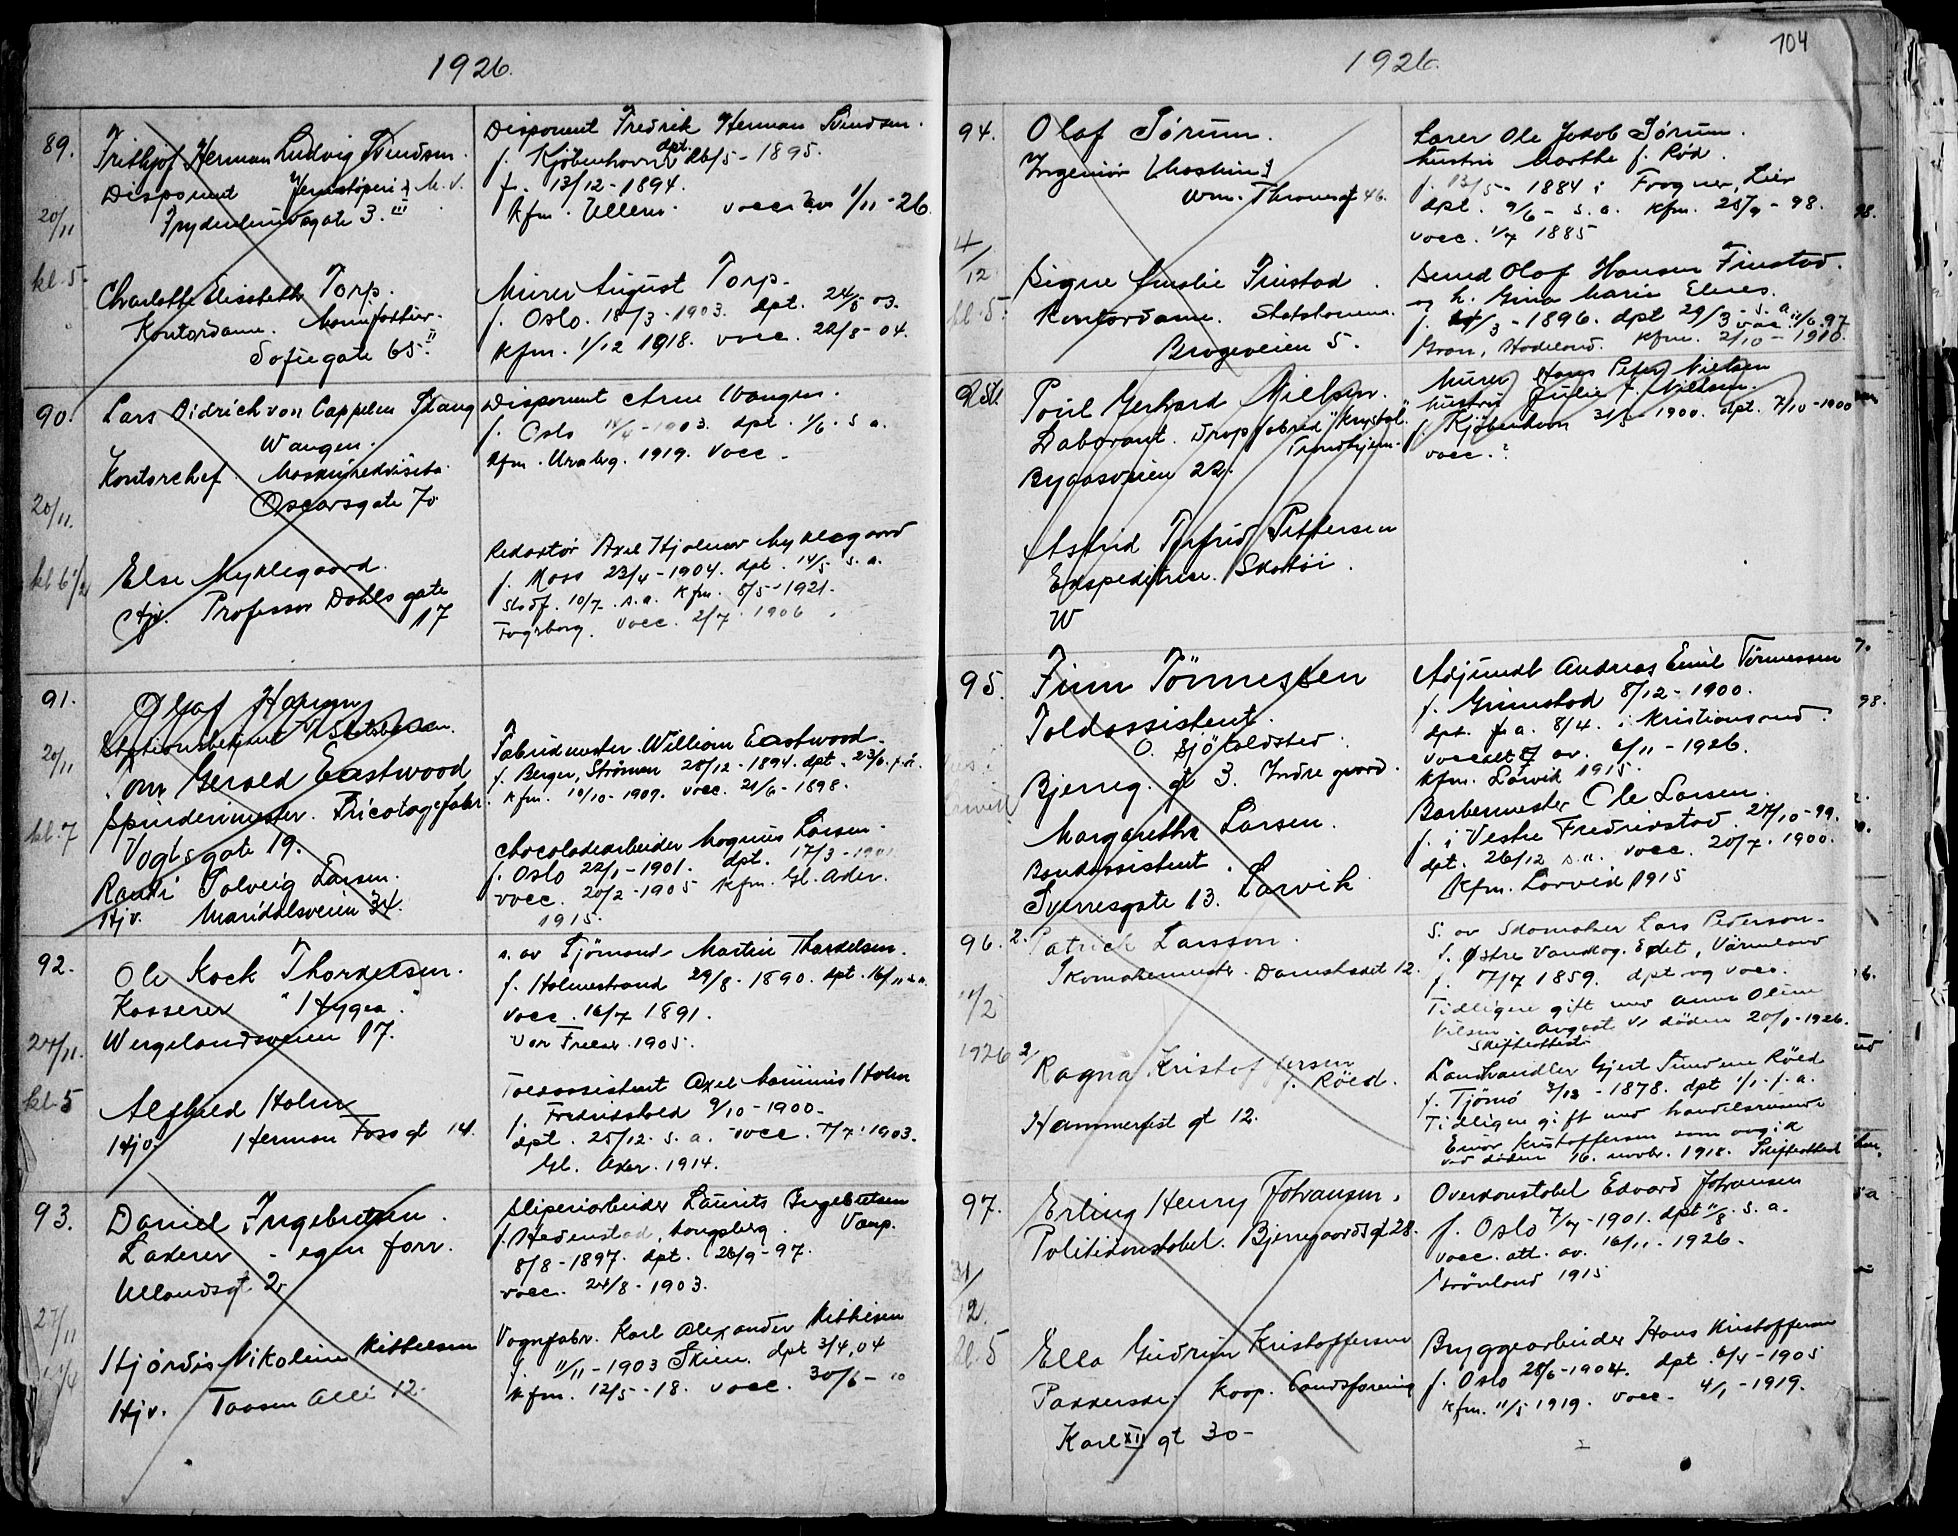 1926.
89.
Frithjof Herman Ludvig Svendsen.
Disponent Jernstøperi & M. V.
20/11
Frydenlundsgate 3. III
kl. 5
Charlotte Elisabeth Torp.
Kontordame.
Sofiegate 65. II
Disponent Fredrik Herman Svendsen.
f. Kjøbenhavn dpt. 26/5 - 1895.
f. 13/12 - 1894.
Kfm. Ullern. vacc. 1/11 - 26.
Murer August Torp.
f. Oslo. 18/3 - 1903. dpt. 24/5 03.
Kfm. 1/12 1918. vacc. 22/8 - 04.
90.
Lars Didrich von Cappelen Stang
Wangen.
Kontorchef
Oscarsgate 70
20/11.
kl 6 1/2
Else Myklegaard.
Hjv. Professor Dahls gate
17
Disponent Arne Wangen.
f. Oslo 1903. dpt. 1/6. s a.
Kfm. Uranbg. 1919. Vacc -
Redaktør Axel Hjalmar Myklegaard
f. Moss 23/4 - 1904. dpt. 14/5 s. a.
10/7. s.a. Kfm. 8/5 - 1921.
Fagerborg. Vacc. 2/7 1906.
91.
Olaf Hansen
20/11
Gerald Eastwood
Spinderimester. Tricotagefabr.
kl. 7
Vogtsgate 19.
Randi Solveig Larsen.
Hjv. Maridalsveien 34.
Fabrikmester William Eastwood.
f. Berger, Strømm 28/12 - 1894. dpt. 23/6
Kfm. 10/10 - 1909. vacc. 21/6 - 1898.
Chocoladearbeider Magnus Larsen.
f. Oslo 22/1 - 1901. dpt. 17/3 - 1901
vacc. 20/2 - 1905 Kfm. Gl. Aker.
1915.
92.
Ole Kock Thorkelsen.
Kasserer "Hygea"
27/11.
Wergelandsveien 17.
kl. 5
Alfhild Holm
Hjv. Herman Foss gt 14.
s. av Sjømand Martin Thorkelsen.
f. Holmestrand 29/8 - 1890. dpt. 16/11 s. a.
Vacc. 16/7 1891.
Vor Frelser 1905.
Toldassistent Axel Holm
f. Fredrikshald 9/10 - 1900.
dpt. 25/12. s. a. vacc. 7/7. 1903.
Gl. Aker. 1914.
93.
Daniel Ingebretsen.
Lakerer - egen forr.
Ullandsgt. 2.
27/11
Hjørdis Nikoline Kittilsen
Hjv. Taasen Alle 12.
Sliperiarbeider Laurits Ingebretsen
f. Hedenstad, Kongsberg.
8/8 - 1897. dpt. 26/9 - 97.
vacc. 24/8 - 1903.
Vognfabr. Karl Alexander Kittilsen
f. 11/11 - 1903 Skien. dpt 3/4, 04
Kfm. 12/5 - 18. vacc. 30/6 - 10
1926.
104
94.
Olaf Sørum.
Ingeniør (Maskin)
Wm. Thranesgt 46.
4/12
kl. 5
Signe Amalie Finstad.
Kontordame.
Brageveien 5.
Lærer Ole Jakob Sørum.
hustru Marthe f. Rød.
f. 13/5 - 1884 i Frogner, Lier
dpt. 9/6 - s. a. Kfm. 25/9 - 98.
vacc. 1/7 1885
Olaf Hansen Finstad.
og h. Gina Marie
f. /3 - 1896. dpt 29/3 - s. a. vac. 11/6. 97
Gran, Hadeland. Kfm. 2/10 - 1910.
Poul Gerhard Nielsen.
Laborant. Dropsfabrik "Krystal"
Trondhjem.
Bygdøveien 22.
Astrid Torfrid Pettersen
Ekspeditrise. Skotøi.
W
Murer Hans Peter Nielsen
hustru Julie f. Nielsen.
f. Kjøbenhavn 31/8 - 1900. dpt. 7/10 - 1900
vacc.?
95.
Finn Tönnessen
Toldassistent.
O. Sjötoldsted.
Bjerreg. gt 3. Indre gaard.
Margaretha Larsen.
Bankassistent.
Sverresgate 13. Larvik
Adjunkt Andreas Emil Tönnessen
f. Grimstad 8/12 - 1900.
dpt. f. a. 8/4. i Kristiansand.
av. 6/11 - 1926.
Kfm. Larvik 1915.
Barbermester Ole Larsen.
f. i Vestre Fredrikstad 27/10 - 99.
dpt. 26/12 s. a. vacc. 20/7. 1900.
Kfm. Larvik 1915
96.
2. Patrick Larsson.
Skomakermester. Damstrædet 12.
11/2
1926
2/ Ragna Kristoffersen
f. Röed.
Hammerfest gt 12.
S. av Skomaker Lars Pederson.
f. Østre Vandog. Edet, Värmland
f. 17/7 1859. dpt og vacc.
Tidligere gift med Anna Oline
Nilsen. avgaat v døden 20/1 - 1926.
Skifteattest
Landhandler Gjert Röed
f. Tjømø 3/12 - 1878. dpt 1/1. f. a.
Tidligere gift med handelsreisende
Einar Kristoffersen som avgik
ved døden 16. novbr. 1918. Skifteattest
97.
Erling Henry Johansen.
Politikonstabel. Bjerregaardsgt 28.
31/12.
kl. 5
Ella Gudrun Kristoffersen
Pakkerske. Koop. Landsforening
Karl XII gt 30 -
Overkonstabel Edvard Johansen
f. Oslo 7/7 - 1901. dpt 11/8. s. a.
vacc. att. av. 16/11 - 1926.
Grønland 1915
Bryggearbeider Hans Kristoffersen
f. Oslo 28/6 - 1904. dpt. 6/4 - 1905
Kfm. 11/5 1919. vacc. 4/1 - 1919.